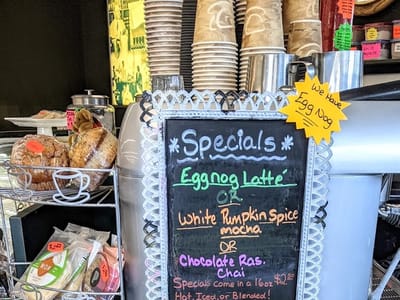 We Have
Egg Nog
Specials
Eggnog Latté
OR
White Pumpkin Spice
mocha
OR
Chocolate Ras.
Chai
Specials come in a 16oz $2
Hot, Iced, or Blended!